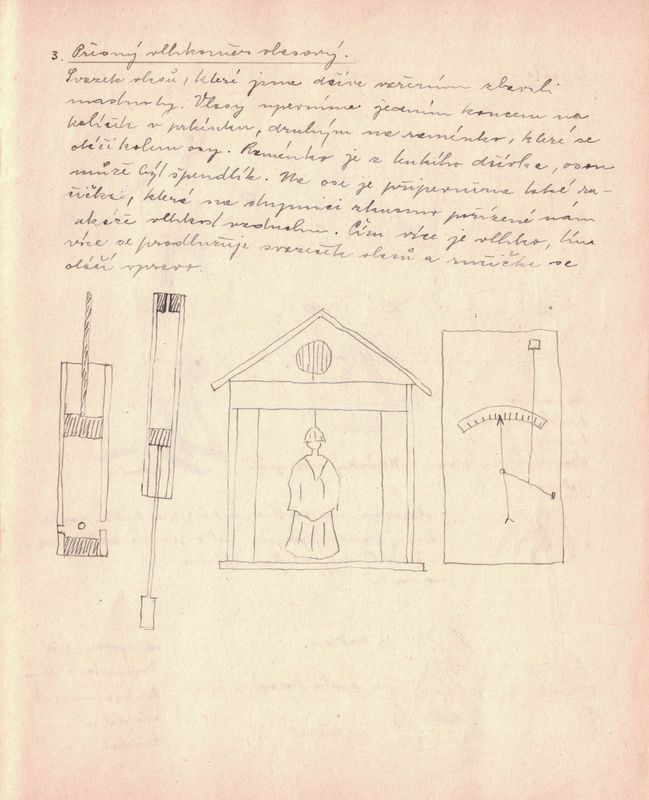 3. Přesný vlhkoměr vlasový.
Svazek vlasů, které jsme dříve vařením zbavili
mastnoty. Vlasy upevníme jedním koncem na
kolíčik v prkénku, druhým na raménko, které se
otáčí kolem osy. Raménko je z tenkého dřívka, osou
může být špendlík. Na ose je připevněna také ru-
čička, která na stupnici zkusmo pořízené nám
ukáže vlhkost vzduchu. Čím více je vlhko, tím
více se prodlužuje svazeček vlasů a ručička se
otáčí vpravo.